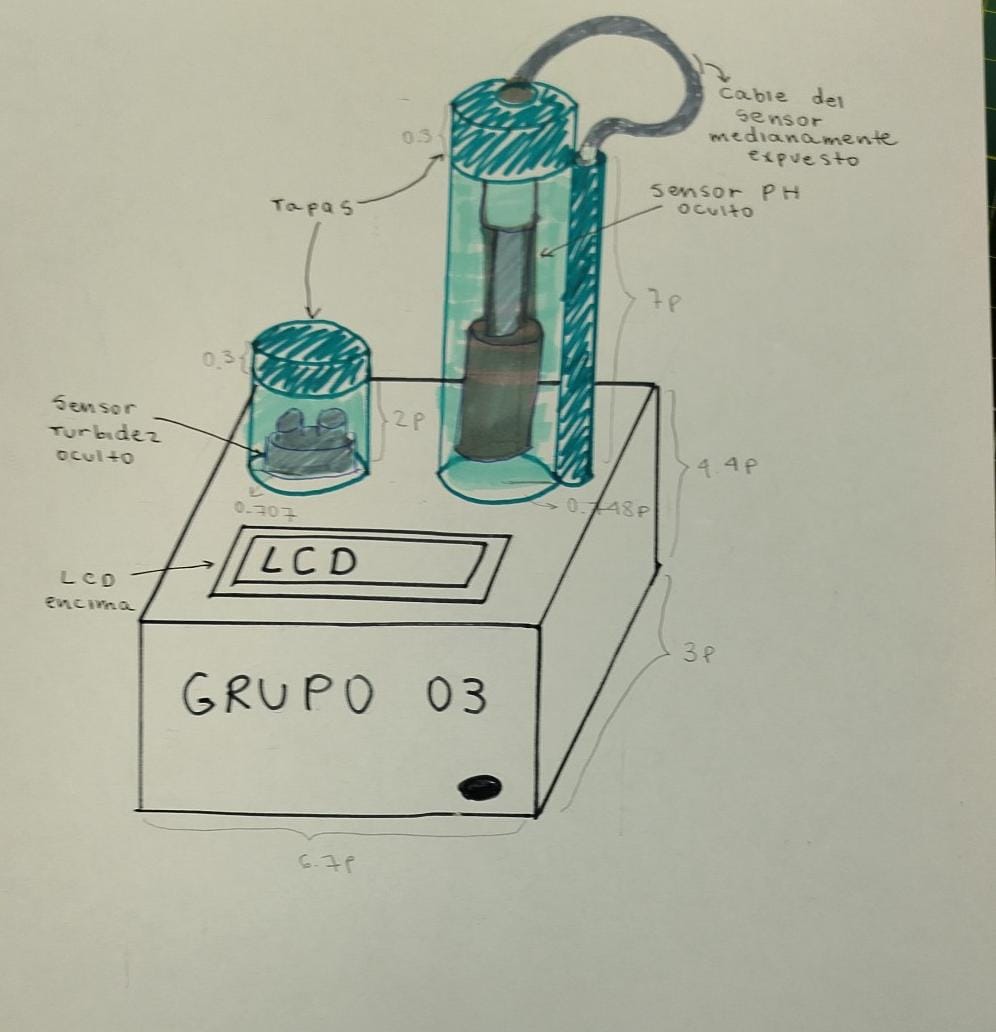 Cable del
sensor
medianamente
expuesto
0.3
Tapas
Sensor PH
oculto
7p
0.3
Sensor
Turbidez
oculto
2p
4.4p
0.707
0.748p
LCD
encima
LCD
3p
GRUPO 03
6.7p